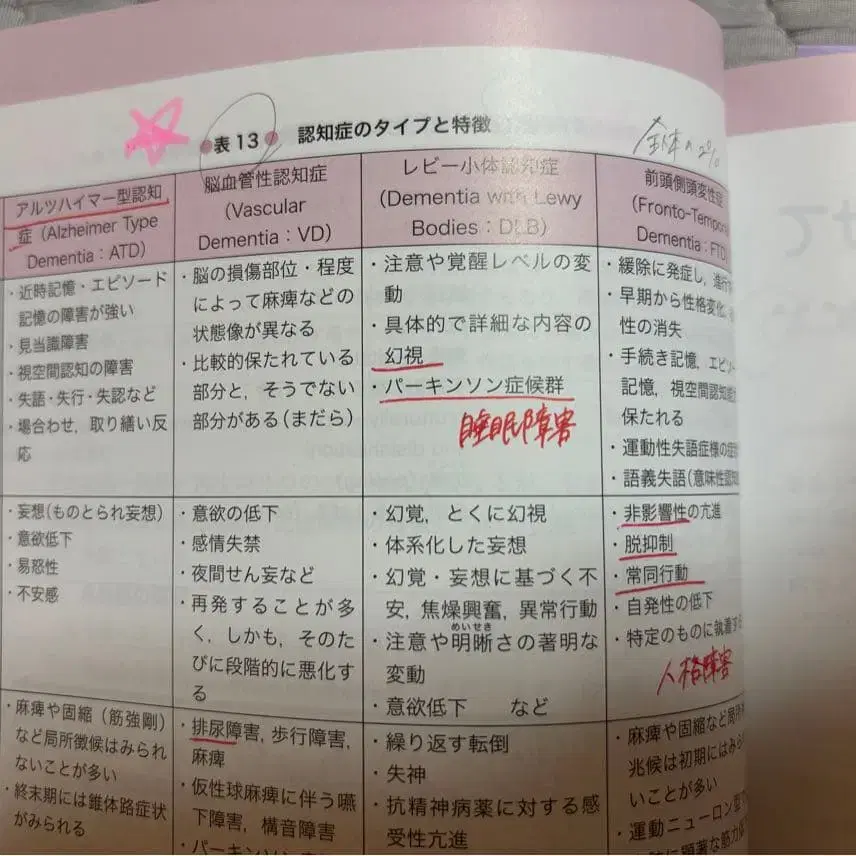 表13 認知症のタイプと特徴
全体の2%
アルツハイマー型認知
症(Alzheimer Type
Dementia:ATD)
脳血管性認知症
(Vascular
Dementia:VD)
レビー小体認知症
(Dementia with Lewy
Bodies:DLB)
前頭側頭変性症
(Fronto-Tempora
Dementia:FTD
・近時記憶・エピソード
記憶の障害が強い
・見当識障害
・視空間認知の障害
・失語・失行・失認など
・場合わせ,取り繕い反
応
・脳の損傷部位・程度
によって麻痺などの
状態像が異なる
・比較的保たれている
部分と,そうでない
部分がある(まだら)
・注意や覚醒レベルの変
動
・具体的で詳細な内容の
幻視
・パーキンソン症候群
睡眠障害
・緩除に発症し,進行
・早期から性格変化,
性の消失
・手続き記憶,エピソー
記憶,視空間認知
保たれる
・運動性失語症様の症
・語義失語(意味性認知
・妄想(ものとられ妄想)
・意欲低下
・易怒性
・不安感
・意欲の低下
・感情失禁
・夜間せん妄など
・再発することが多
く,しかも,そのた
びに段階的に悪化す
る
・幻覚,とくに幻視
・体系化した妄想
・幻覚・妄想に基づく不
安,焦燥興奮,異常行動
めいせき
・注意や明晰さの著明な
変動
・意欲低下 など
・非影響性の亢進
・脱抑制
・常同行動
・自発性の低下
・特定のものに執着す
人格障害
・麻痺や固縮(筋強剛)
など局所徴候はみられ
ないことが多い
・終末期には錐体路症状
がみられる
・排尿障害,歩行障害,
麻痺
・仮性球麻痺に伴う嚥
下障害,構音障害
・パーキンソン症
・繰り返す転倒
・失神
・抗精神病薬に対する感
受性亢進
・麻痺や固縮など局所
兆候は初期にはみら
いことが多い
・運動ニューロン型
に顕著な筋力
けて